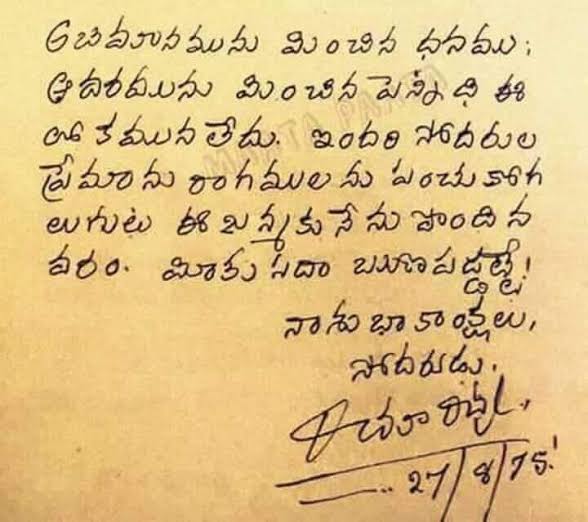 అభిమానమును మించిన ధనము;
ఆదరమును మించిన పెన్నిధి ఈ
లోకమున లేదు. ఇందరి సోదరుల
ప్రేమానురాగములను పంచుకోగ
లుగుట ఈ జన్మకు నేను పొందిన
వరం. మీకు సదా ఋణపడ్డట్లే!
నా శుభాకాంక్షలు,
సోదరుడు.
27/8/75!